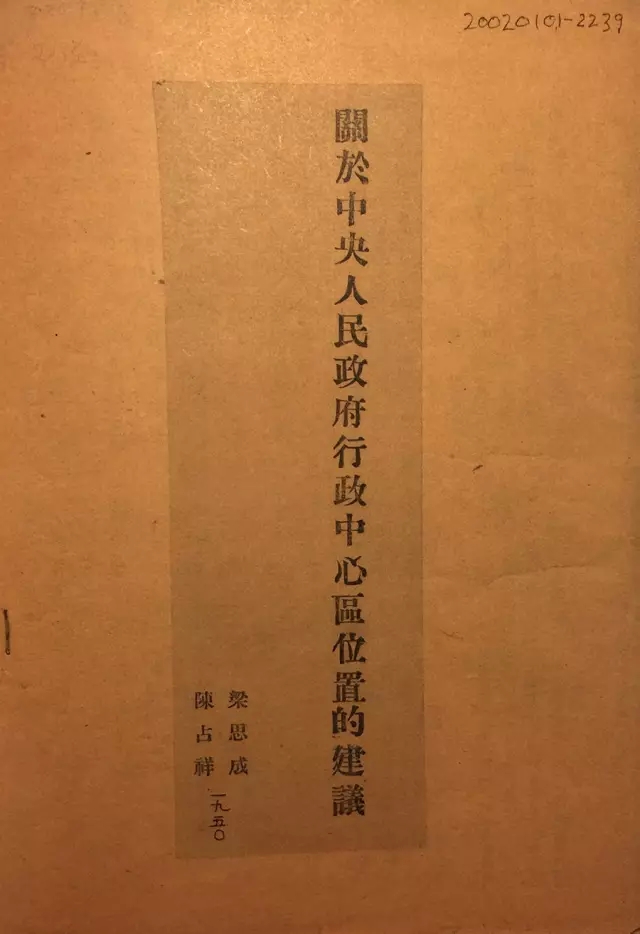 20020101-2239
關於中央人民政府行政中心區位置的建議
梁思成
陳占祥
一九五〇